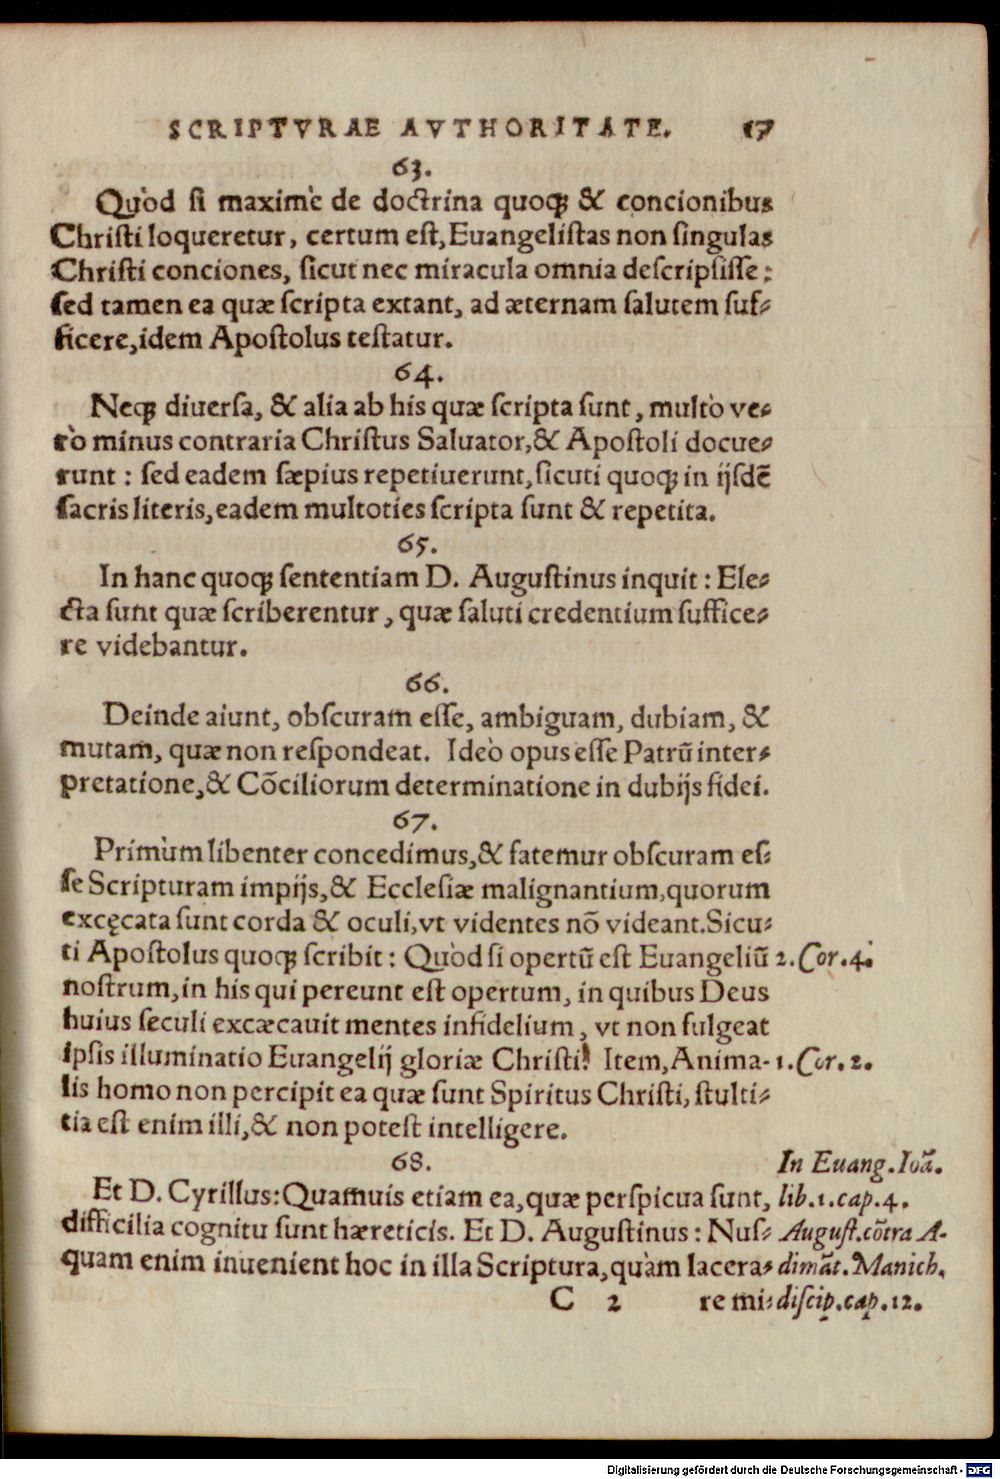 SCRIPTVRAE AVTHORITATE. 17
63.
Quòd si maximè de doctrina quoq; & concionibus
Christi loqueretur, certum est, Euangelistas non singulas
Christi conciones, sicut nec miracula omnia descripsisse:
sed tamen ea quæ scripta extant, ad æternam salutem suf-
ficere, idem Apostolus testatur.
64.
Neq; diuersa, & alia ab his quæ scripta sunt, multò ve-
rò minus contraria Christus Saluator, & Apostoli docue-
runt: sed eadem sæpius repetiuerunt, sicuti quoq; in ijsdē
sacris literis, eadem multoties scripta sunt & repetita.
65.
In hanc quoq; sententiam D. Augustinus inquit: Ele-
cta sunt quæ scriberentur, quæ saluti credentium suffice-
re videbantur.
66.
Deinde aiunt, obscuram esse, ambiguam, dubiam, &
mutam, quæ non respondeat. Ideò opus esse Patrū inter-
pretatione, & Cōciliorum determinatione in dubijs fidei.
67.
Primùm libenter concedimus, & fatemur obscuram es-
se Scripturam impijs, & Ecclesiæ malignantium, quorum
excęcata sunt corda & oculi, vt videntes nō videant. Sicu-
ti Apostolus quoq; scribit: Quòd si opertū est Euangeliū 2. Cor. 4.
nostrum, in his qui pereunt est opertum, in quibus Deus
huius seculi excæcauit mentes infidelium, vt non fulgeat
ipsis illuminatio Euangelij gloriæ Christi! Item, Anima- 1. Cor. 2.
lis homo non percipit ea quæ sunt Spiritus Christi, stulti-
tia est enim illi, & non potest intelligere.
68. In Euang. Ioā.
Et D. Cyrillus: Quamuis etiam ea, quæ perspicua sunt, lib. 1. cap. 4.
difficilia cognitu sunt hæreticis. Et D. Augustinus: Nus- August. cōtra A-
quam enim inuenient hoc in illa Scriptura, quàm lacera- dimāt. Manich.
C 2 re mi- discip. cap. 12.
Digitalisierung gefördert durch die Deutsche Forschungsgemeinschaft - DFG